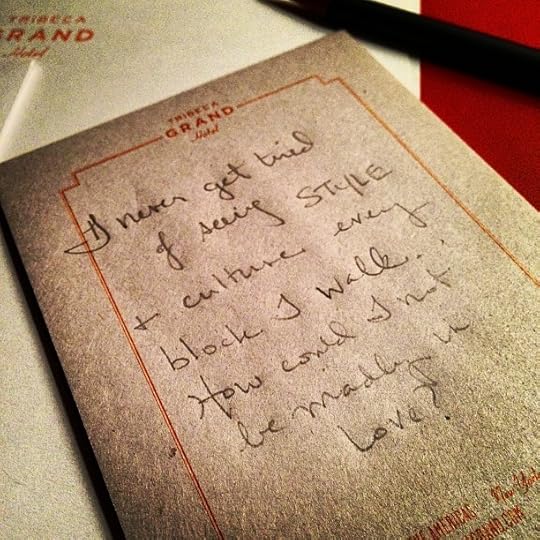 TRIBECA
GRAND
Hotel
TRIBECA
GRAND
Hotel
I never get tired
of seeing STYLE
+ culture every
block I walk...
How could I not
be madly in
Love?
THE AMERICAS New York
GRAND.COM